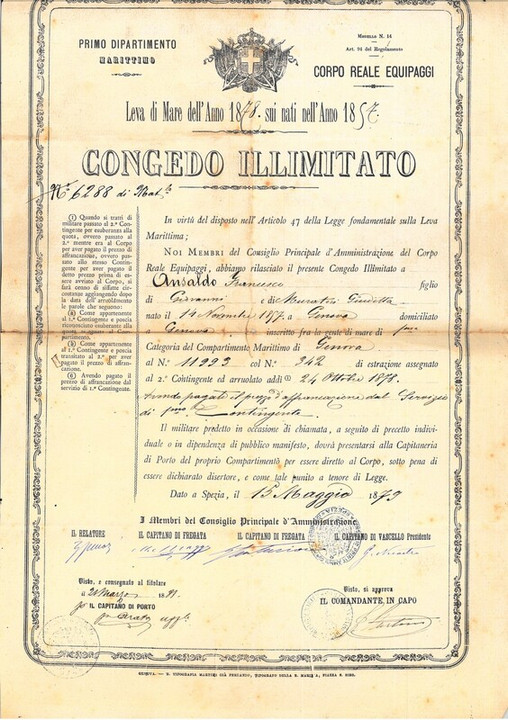 PRIMO DIPARTIMENTO
MARITTIMO
MODELLO N. 14
Art. 94 del Regolamento
CORPO REALE EQUIPAGGI
Leva di Mare dell'Anno 1878. sui nati nell'Anno 1857.
CONGEDO ILLIMITATO
N.° 6288 di Mat.la
(1) Quando si tratti di
militare passato al 2.° Con-
tingente per esuberanza alla
quota, ovvero passato al
2.° mentre era al Corpo
per aver pagato il prezzo di
affrancazione, ovvero pas-
sato allo stesso Contin-
gente per aver pagato il
detto prezzo prima di es-
sere avviato al Corpo, si
cerà di siffatte cir-
costanze aggiungendo dopo
la data dell'arruolamento
le parole che seguono:
(a) Come appartenente
al 1.° Contingente e poscia
riconosciuto esuberante alla
quota di Compartimento.
(β) Come appartenente
al 1.° Contingente e poscia
transitato al 2.° per aver
pagato il prezzo di affran-
cazione.
(γ) Avendo pagato il
prezzo di affrancazione dal
servizio di 1.° Contingente.
In virtù del disposto nell'Articolo 47 della Legge fondamentale sulla Leva
Marittima;
NOI MEMBRI del Consiglio Principale d'Amministrazione del Corpo
Reale Equipaggi, abbiamo rilasciato il presente Congedo Illimitato a
Ansaldo Francesco figlio
di Giovanni e di
nato il 14 Novembre 1857, a Genova domiciliato
a Genova inscritto fra la gente di mare di
Categoria del Compartimento Marittimo di Genova
al N.° 11993 col N.° 342 di estrazione assegnato
al 2.° Contingente ed arruolato addì 24 Ottobre 1878.
avendo pagato il prezzo d'affrancazione dal Servizio
di Contingente.
Il militare predetto in occasione di chiamata, a seguito di precetto indivi-
duale o in dipendenza di pubblico manifesto, dovrà presentarsi alla Capitaneria
di Porto del proprio Compartimento per essere diretto al Corpo, sotto pena di
essere dichiarato disertore, e come tale punito a tenore di Legge.
Dato a Spezia, il 15 Maggio 1879
I Membri del Consiglio Principale d'Amministrazione
IL RELATORE
IL CAPITANO DI FREGATA
IL CAPITANO DI FREGATA
IL CAPITANO DI VASCELLO Presidente
Visto, e consegnato al titolare
a Marzo 18
IL CAPITANO DI PORTO
Visto, si approva
IL COMANDANTE IN CAPO
GENOVA.